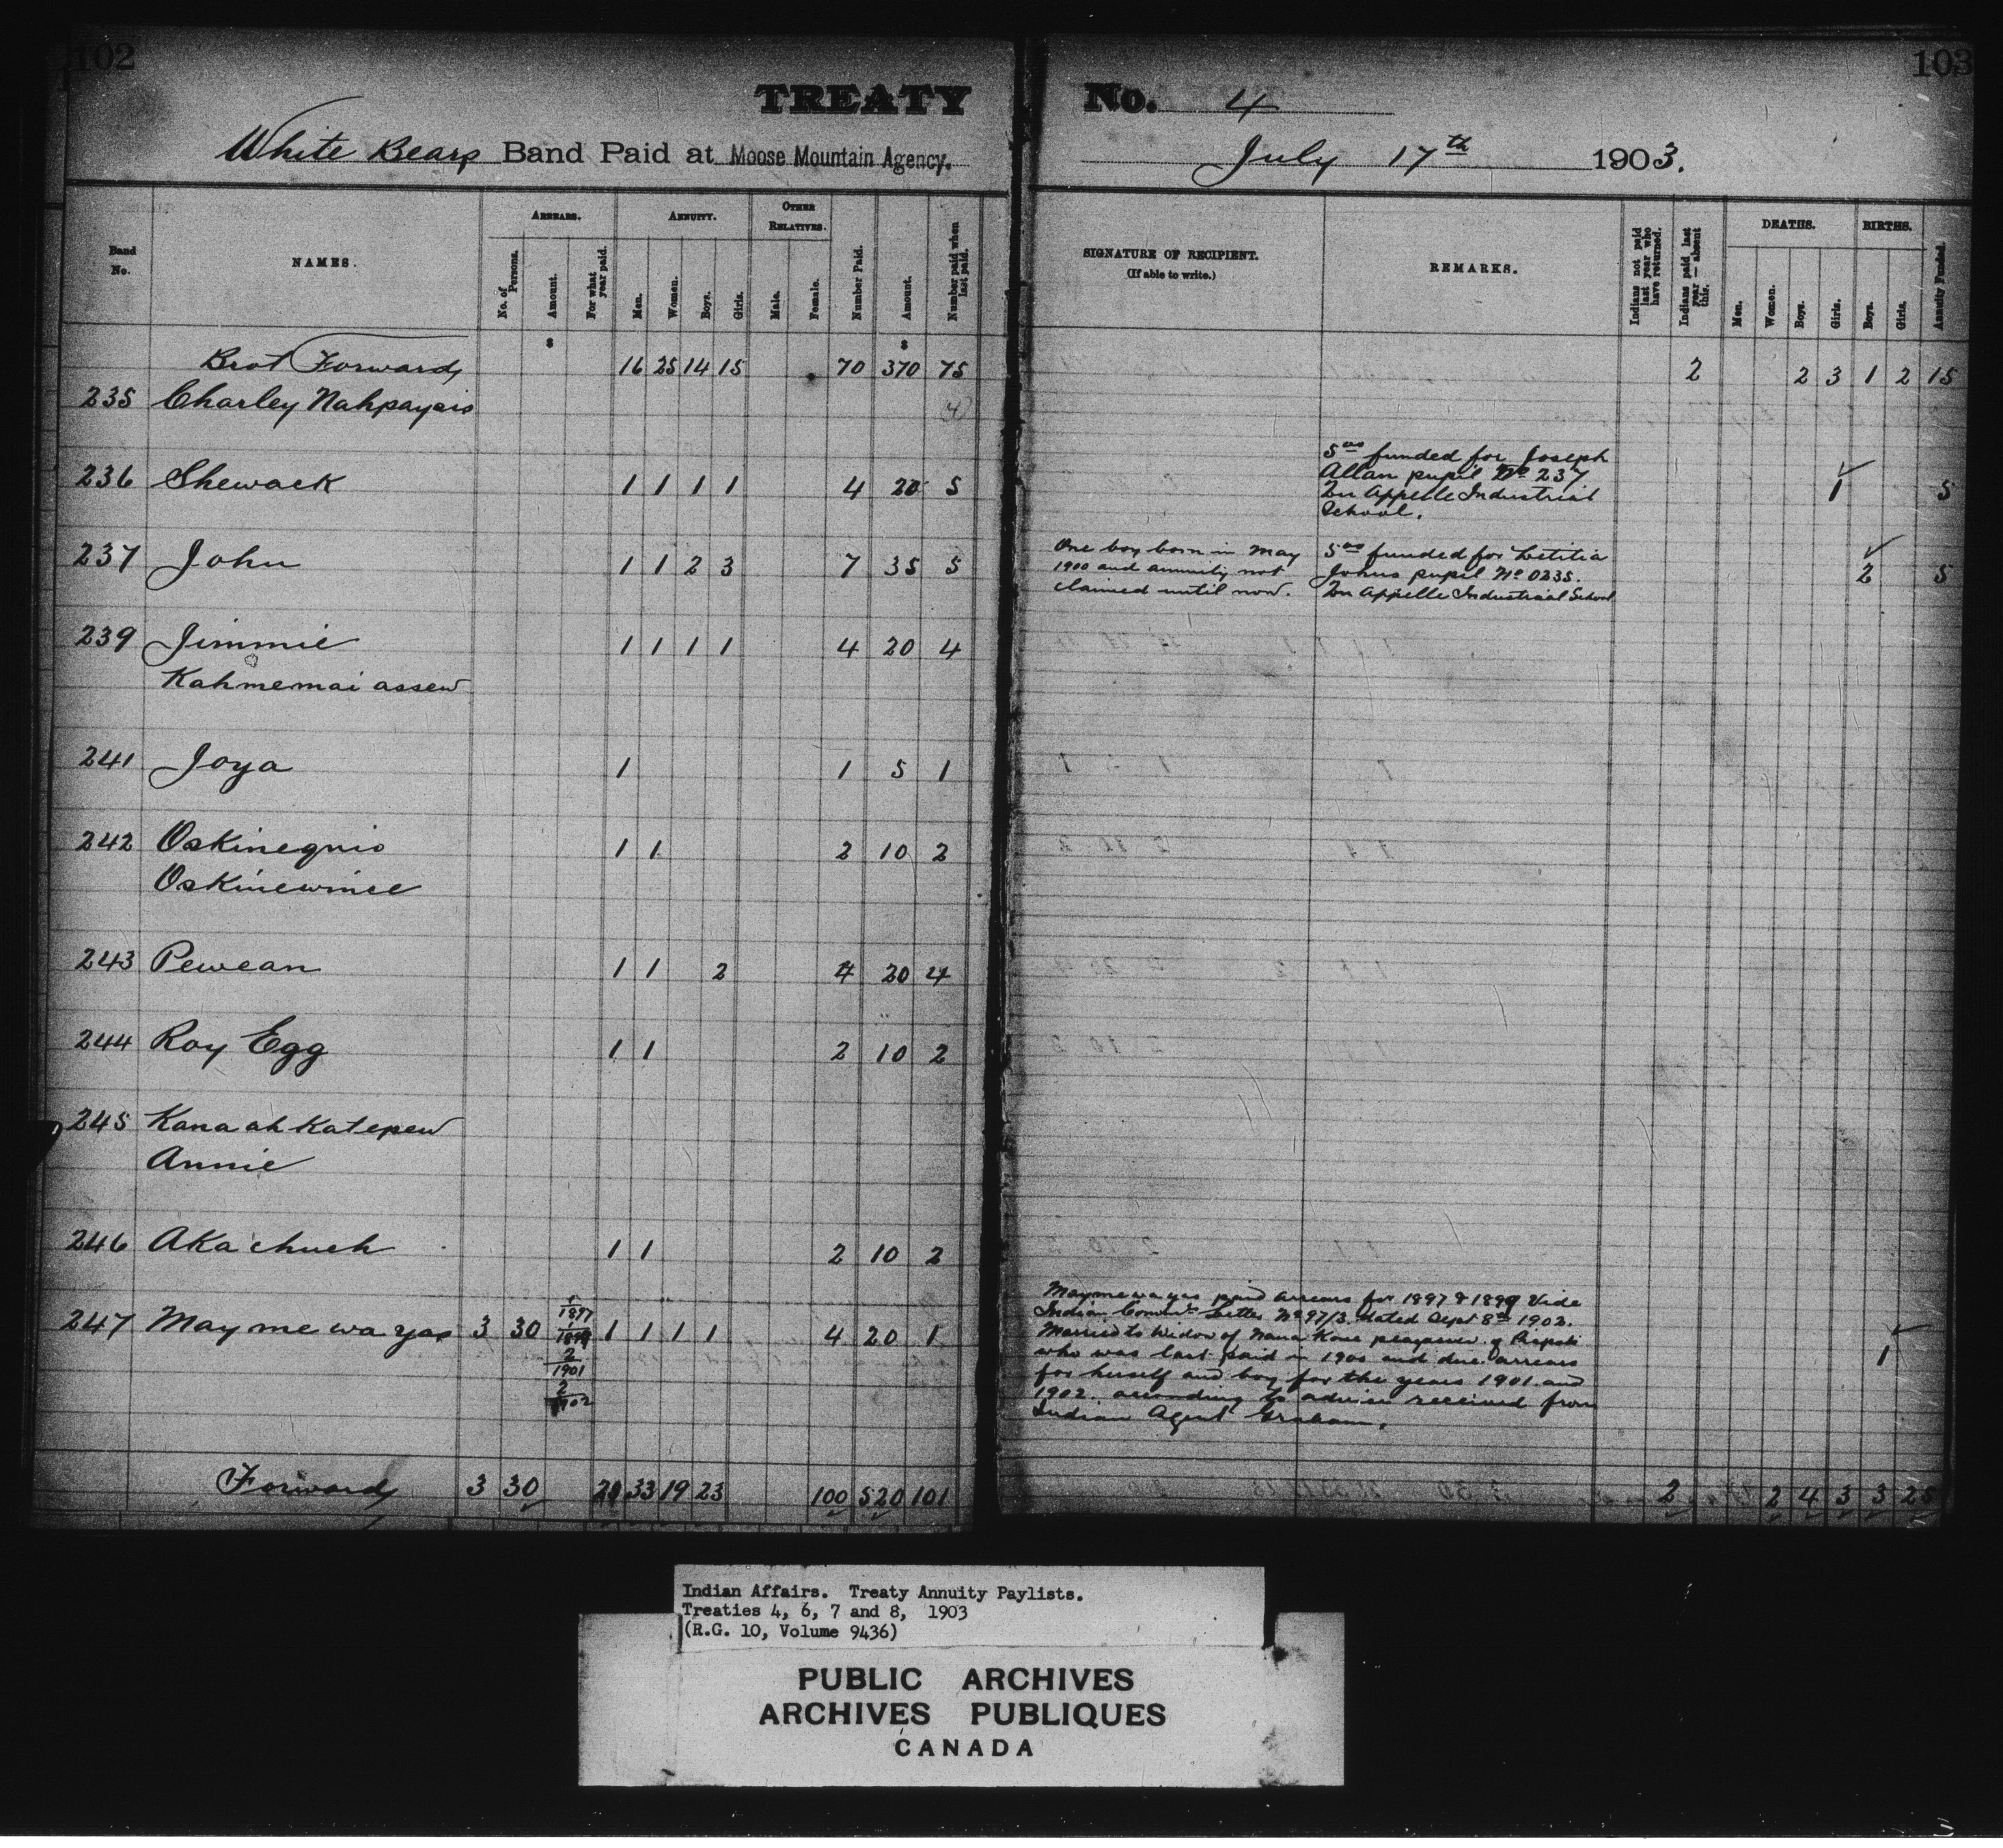 102
TREATY
White Bears Band Paid at Moose Mountain Agency.
Band No.
NAMES.
ARREARS.
No. of Persons.
Amount.
For what year paid.
ANNUITY.
Men.
Women.
Boys.
Girls.
OTHER RELATIVES.
Male.
Female.
Number Paid.
Amount.
Number paid when last paid.
$ $
Brot Forward 16 25 14 15 70 370 75
235 Charley Nahpaysis (4)
236 Shewack 1 1 1 1 4 20 5
237 John 1 1 2 3 7 35 5
239 Jimmie 1 1 1 1 4 20 4
Kahmemai assew
241 Joya 1 1 5 1
242 Oskinegnio 1 1 2 10 2
Oskinewince
243 Pewean 1 1 2 4 20 4
244 Roy Egg 1 1 2 10 2
245 Kana ah Katepew
Annie
246 Aka chueh 1 1 2 10 2
247 May me wa yas 3 30 1/1897 1 1 1 1 4 20 1
2/1901
2/1902
Forward 3 30 33 19 23 100 520 101
103
No. 4
July 17th 1903.
SIGNATURE OF RECIPIENT.
(If able to write.)
REMARKS.
Indians not paid last year who have returned.
Indians paid last year — absent this.
DEATHS.
Men.
Women.
Boys.
Girls.
BIRTHS.
Boys.
Girls.
Annuity Funded.
2 2 3 1 2 15
5.00 funded for Joseph
Allan pupil No 237
Qu Appelle Industrial
School.
1 5
One boy born in May
1900 and annuity not
claimed until now.
5.00 funded for Letitia
Johns pupil No 0235.
Qu Appelle Industrial School
2 5
Maymewayas paid arrears for 1897 & 1899 Vide
Indian Commrs Letter No 97/3 dated Sept 8th 1902.
Married to Widow of Nana Kase
who was last paid in 1900 and due arrears
for herself and boy for the years 1901 and
1902. according to advice received from
Indian Agent Graham.
1
2 2 4 3 3 25
Indian Affairs. Treaty Annuity Paylists.
Treaties 4, 6, 7 and 8, 1903
(R.G. 10, Volume 9436)
PUBLIC ARCHIVES
ARCHIVES PUBLIQUES
CANADA